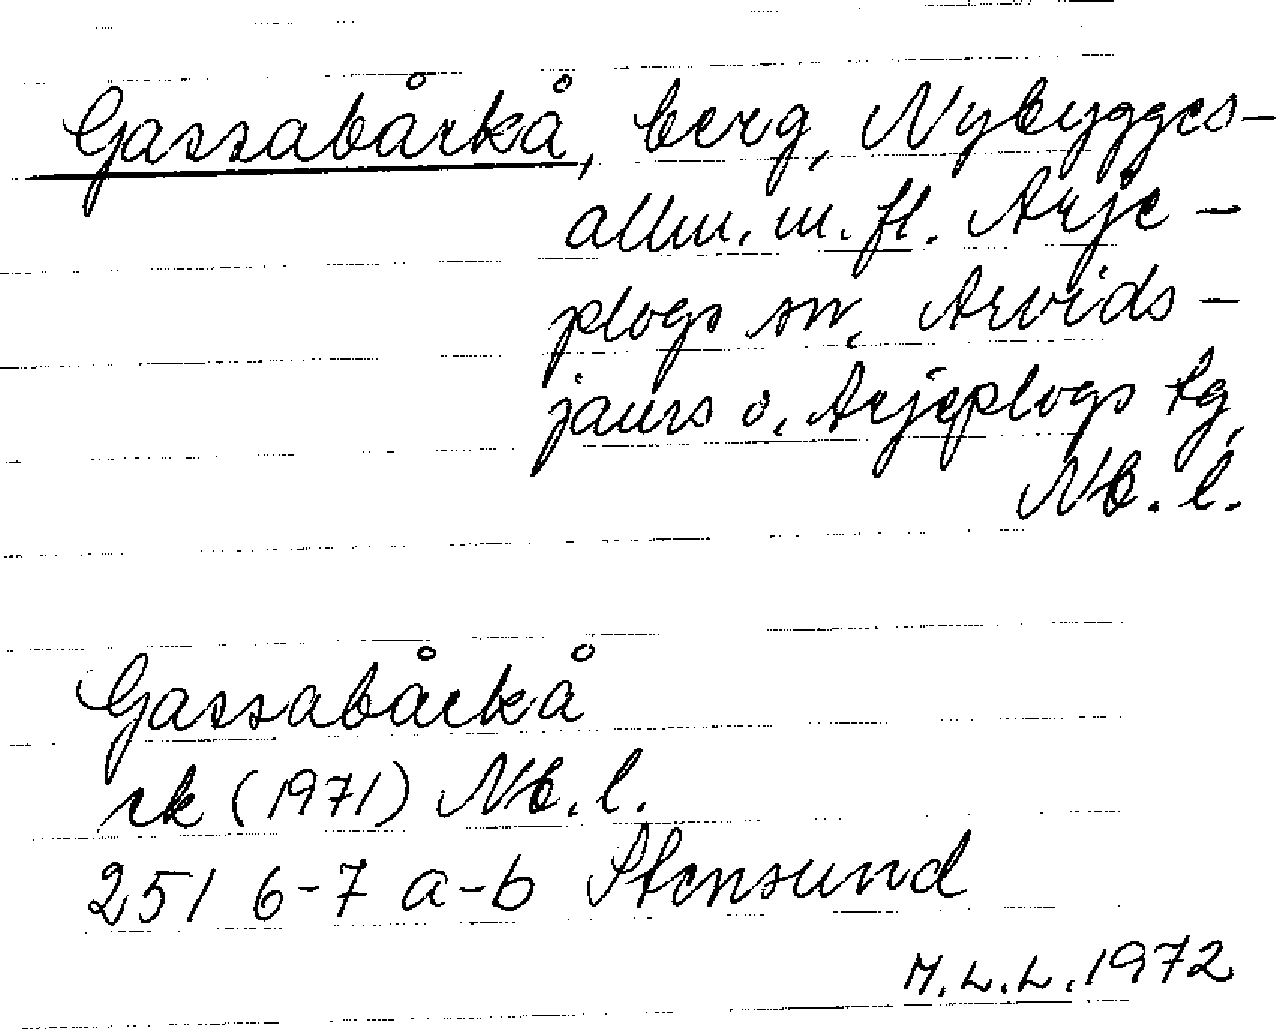 Gassabårkå, berg, Nybygges-
allm. m. fl. Arje-
plogs sn, Arvids-
jaurs o. Arjeplogs tg,
Nb. l.
Gassabårkå
rk (1971) Nb. l.
251 6-7 a-b Stensund
M.L.L. 1972